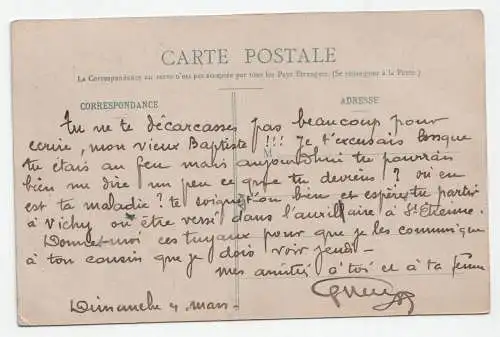 CARTE POSTALE
La Correspondance au recto n'est pas acceptée par tous les Pays Etrangers. (Se renseigner à la Poste.)
CORRESPONDANCE
ADRESSE
Tu ne te décarcasses pas beaucoup pour
écrire, mon vieux Baptiste !!! Je t'excusais lorsque
M
tu étais au feu mais aujourd'hui tu pourrais
bien me dire un peu ce que tu deviens ? où en
est ta maladie ? te soigne-t-on bien et espères tu partir
à Vichy ou être versé dans l'auxillaire à St Etienne.
Donnes-moi ces tuyaux pour que je les communique
à ton cousin que je dois voir jeudi -
mes amitiés à toi et à ta femme
Dimanche 4 mars -